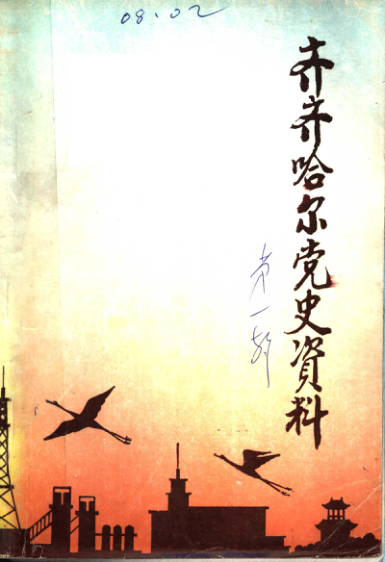 08.02
齐齐哈尔党史資料
第一部